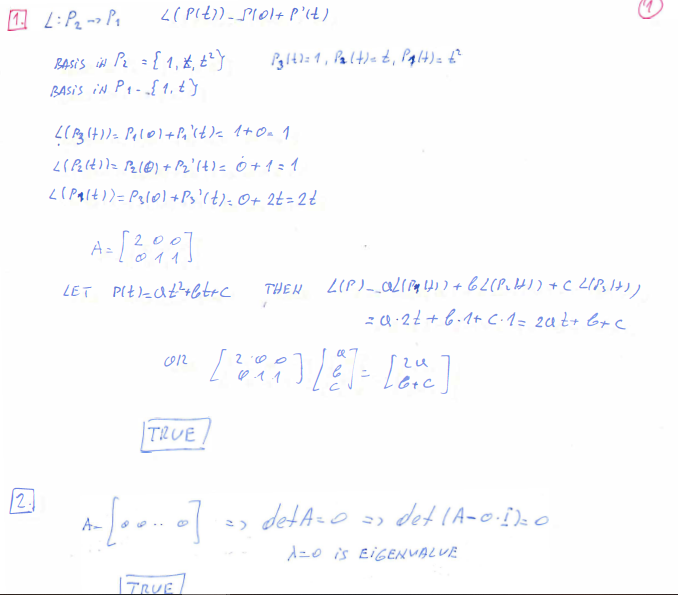 ①
1. L: P₂ → P₁ L(P(t)) = P(0) + P'(t)
BASIS IN P₂ = {1, t, t²} P₃(t)=1, P₂(t)=t, P₁(t)=t²
BASIS IN P₁ = {1, t}
L(P₃(t)) = P₁(0) + P₁'(t) = 1+0 = 1
L(P₂(t)) = P₂(0) + P₂'(t) = 0+1 = 1
L(P₁(t)) = P₃(0) + P₃'(t) = 0+2t = 2t
A = [2 0 0
0 1 1]
LET P(t)=at²+bt+c THEN L(P) = aL(P₁(t)) + bL(P₂(t)) + cL(P₃(t))
= a·2t + b·1 + c·1 = 2at + b+c
OR [2 0 0 [a [2a
0 1 1] b = b+c]
c]
TRUE
2. A = [0 0 .. 0] => det A=0 => det(A-0·I)=0
λ=0 IS EIGENVALUE
TRUE